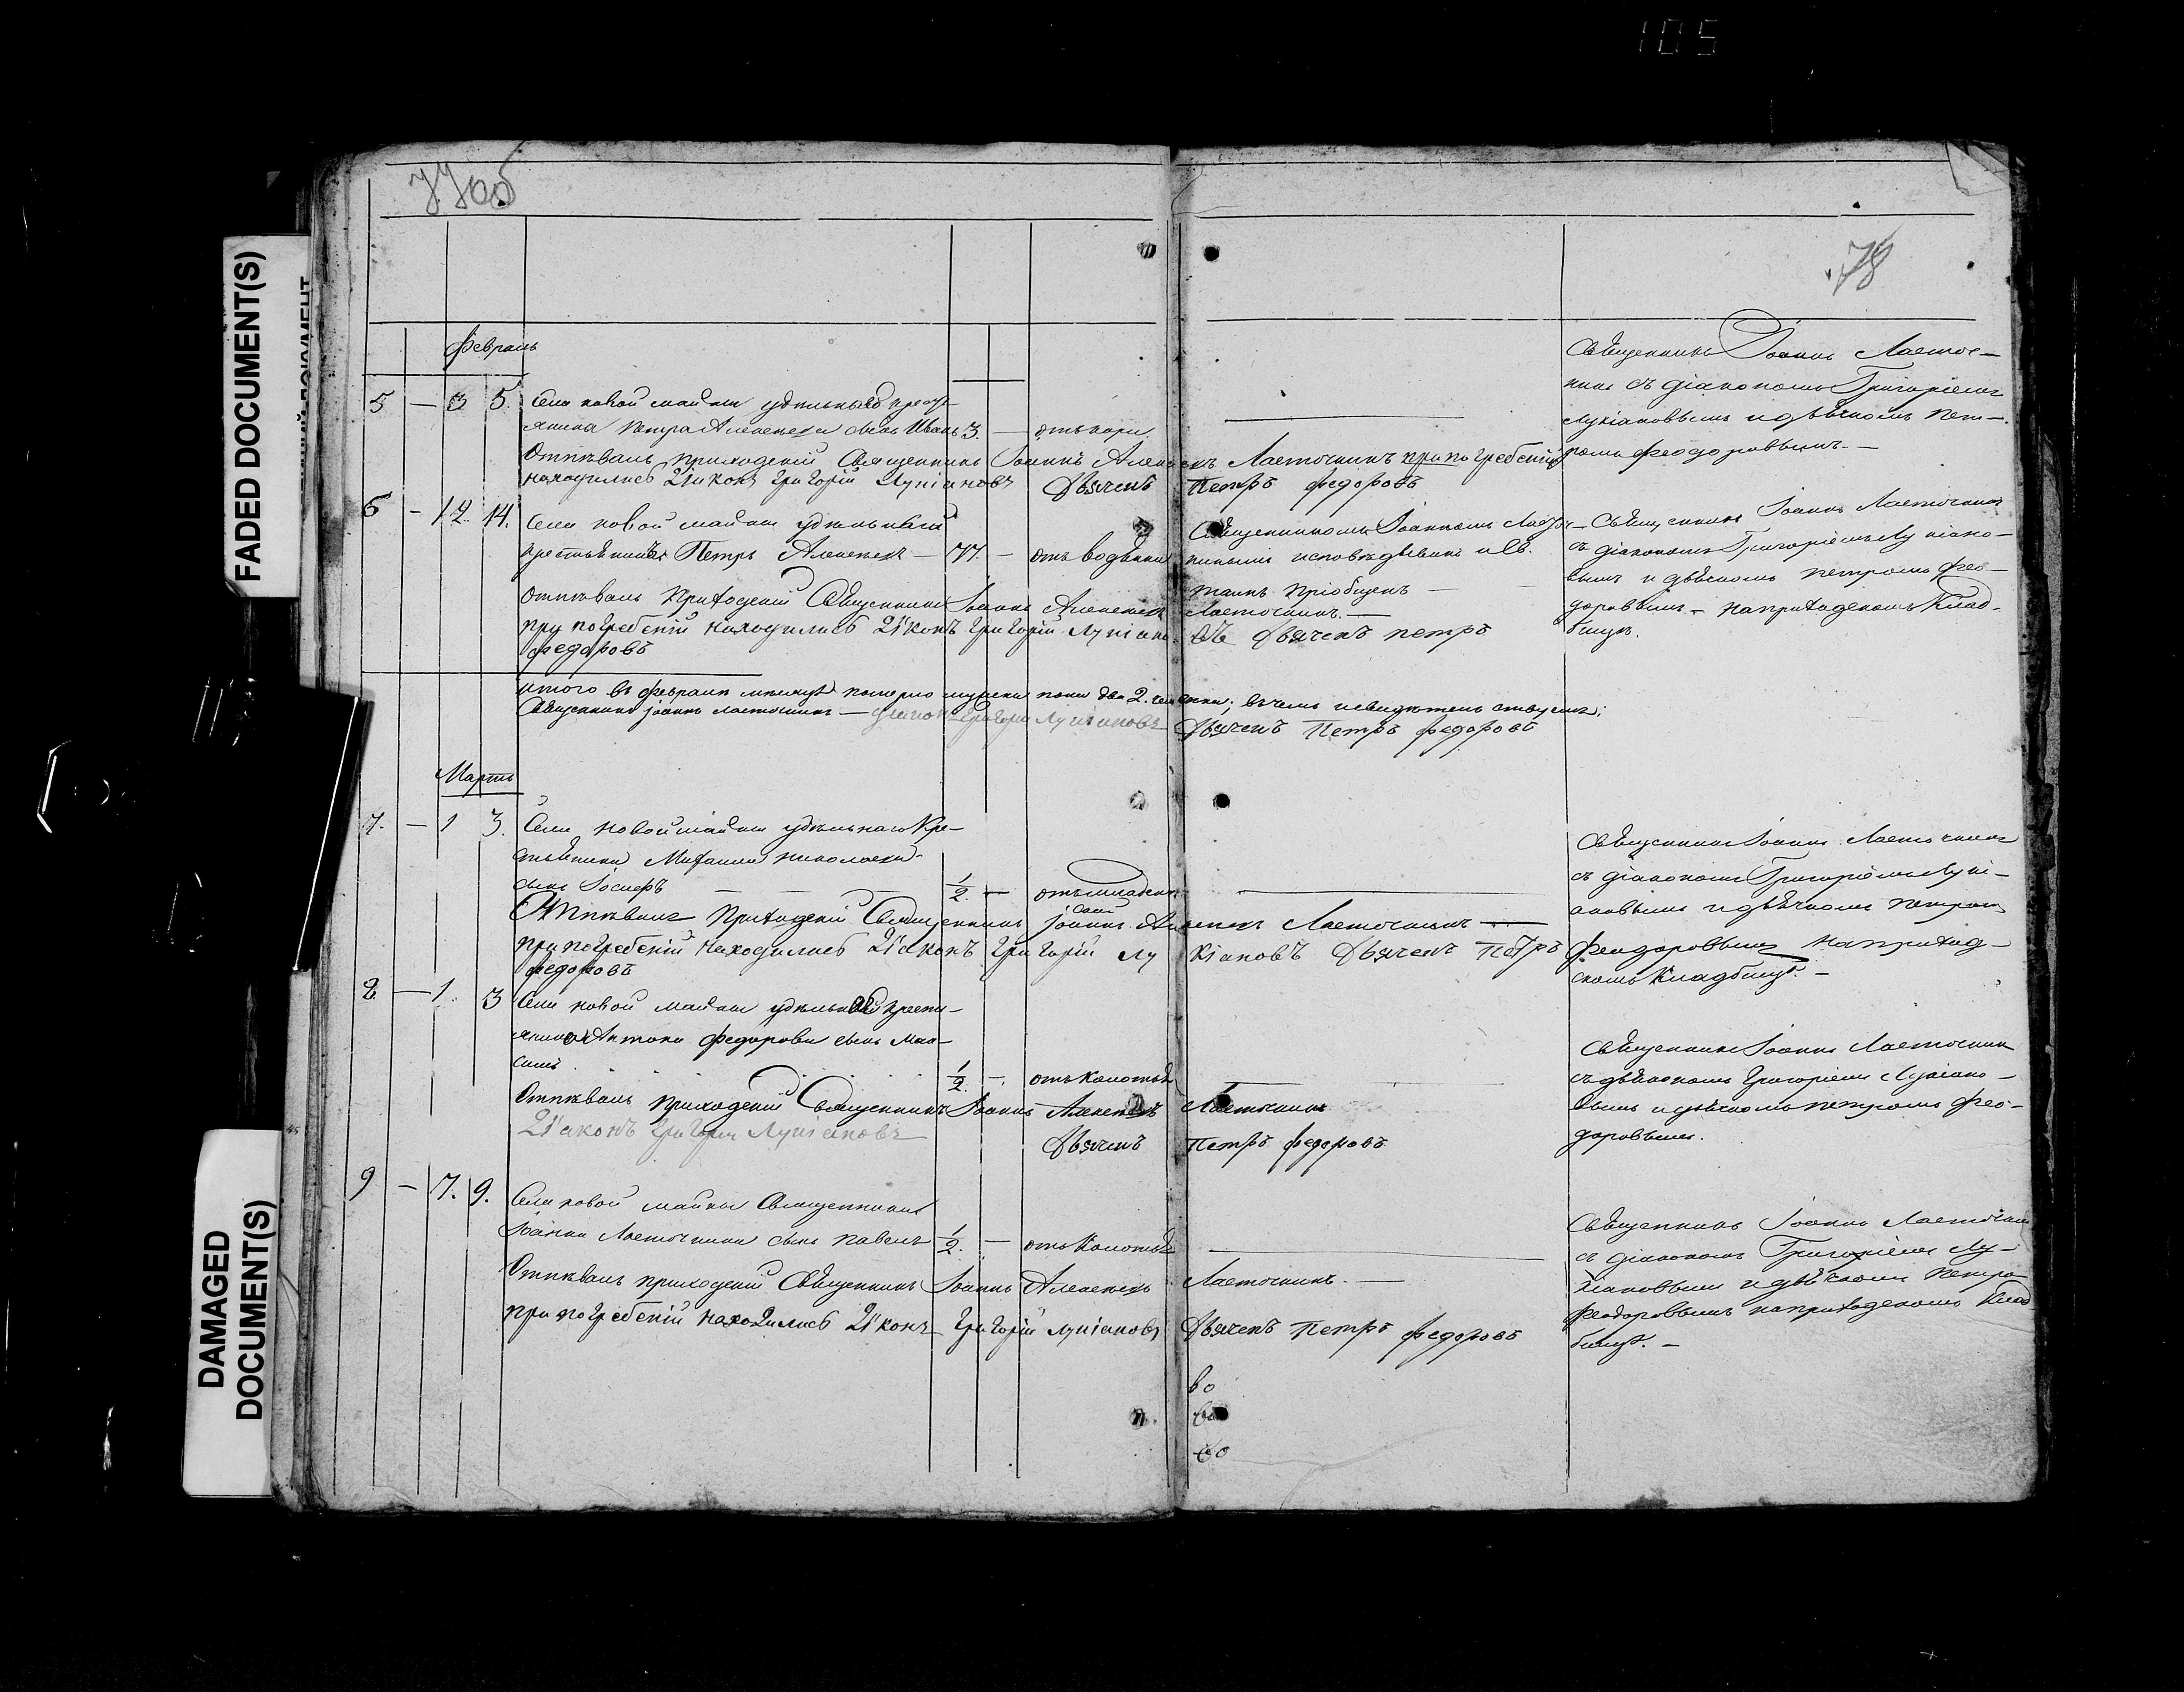 105
77об
78
FADED DOCUMENT(S)
DAMAGED
DOCUMENT(S)
Февраль
5 — 3 5. Села новой майны удѣльнаго кресть-
янина Петра Алексѣева сынъ Иванъ 3. — отъ кори
Отпѣвалъ приходскій Священникъ Іоаннъ Алексѣевъ Ласточкинъ при погребеніи
находились Діаконъ Григорій Лукіановъ Дьячекъ Петръ Федоровъ
Священникъ Іоаннъ Ласточ-
кинъ съ діакономъ Григоріемъ
Лукіановымъ и дьячкомъ Пет-
ромъ Феодоровымъ. —
6 — 12. 14. Села новой майны удѣльный
крестьянинъ Петръ Алексѣевъ — 77. — отъ водянки
Священникомъ Іоанномъ Ласточ-
кинымъ исповѣдыванъ и Св.
таинъ пріобщенъ —
Отпѣвалъ Приходскій Священникъ Іоаннъ Алексѣевъ Ласточкинъ. —
при погребеніи находились Діконъ Григорій Лукіановъ Дьячекъ Петръ
Федоровъ
Священникъ Іоаннъ Ласточкинъ
съ діакономъ Григоріемъ Лукіано-
вымъ и дьячкомъ Петромъ Фео-
доровымъ — на приходскомъ Клад-
бищѣ.
итого въ февралѣ мѣсяцѣ померло мужеска пола два 2. человѣка; въ чемъ и свидѣтельствуемъ;
Священникъ Іоаннъ Ласточкинъ — Діаконъ Григорій Лукіановъ Дьячекъ Петръ Федоровъ
Мартъ
7. — 1 3. Села Новой майны удѣльнаго Кре-
стьянина Михаила Николаева
сынъ Іосифъ — — — 1/2. — отъ младенч.
Отпѣвалъ Приходскій Священникъ Іоаннъ Алексѣевъ Ласточкинъ —
при погребеніи находились Діаконъ Григорій Лукіановъ Дьячекъ Петръ
Федоровъ
Священникъ Іоаннъ Ласточкинъ
съ діакономъ Григоріемъ Луки-
ановымъ и дьячкомъ Петромъ
Феодоровымъ на приход-
скомъ Кладбищѣ. —
8. — 1. 3 Села новой майны удѣльнаго кресть-
янина Антона Федорова сынъ Мак-
симъ . . . . 1/2. —. отъ колотья
Отпѣвалъ приходскій Священникъ Іоаннъ Алексѣевъ Ласточкинъ
Діаконъ Григорій Лукіановъ
Дьячекъ Петръ Федоровъ
Священникъ Іоаннъ Ласточкинъ
съ дьякономъ Григоріемъ Лукіано-
вымъ и дьячкомъ Петромъ Фео-
доровымъ.
9 — 7. 9. Села новой майны Священника
Іоанна Ласточкина сынъ Павелъ 1/2. — отъ колотья
Отпѣвалъ приходскій Священникъ Іоаннъ Алексѣевъ Ласточкинъ. —
при погребеніи находились Діконъ Григорій Лукіановъ Дьячекъ Петръ Федоровъ
Священникъ Іоаннъ Ласточкинъ
съ діакономъ Григоріемъ Лу-
кіановымъ и дьячкомъ Петро
Феодоровымъ на приходскомъ Клад-
бищѣ. —
во
во